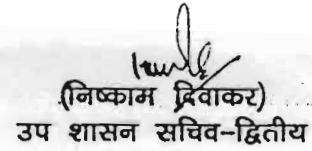 (निष्काम दिवाकर)
उप शासन सचिव-द्वितीय